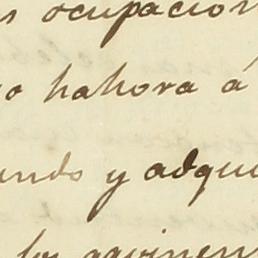 s ocupacion
o hahora á
undo y adque
los